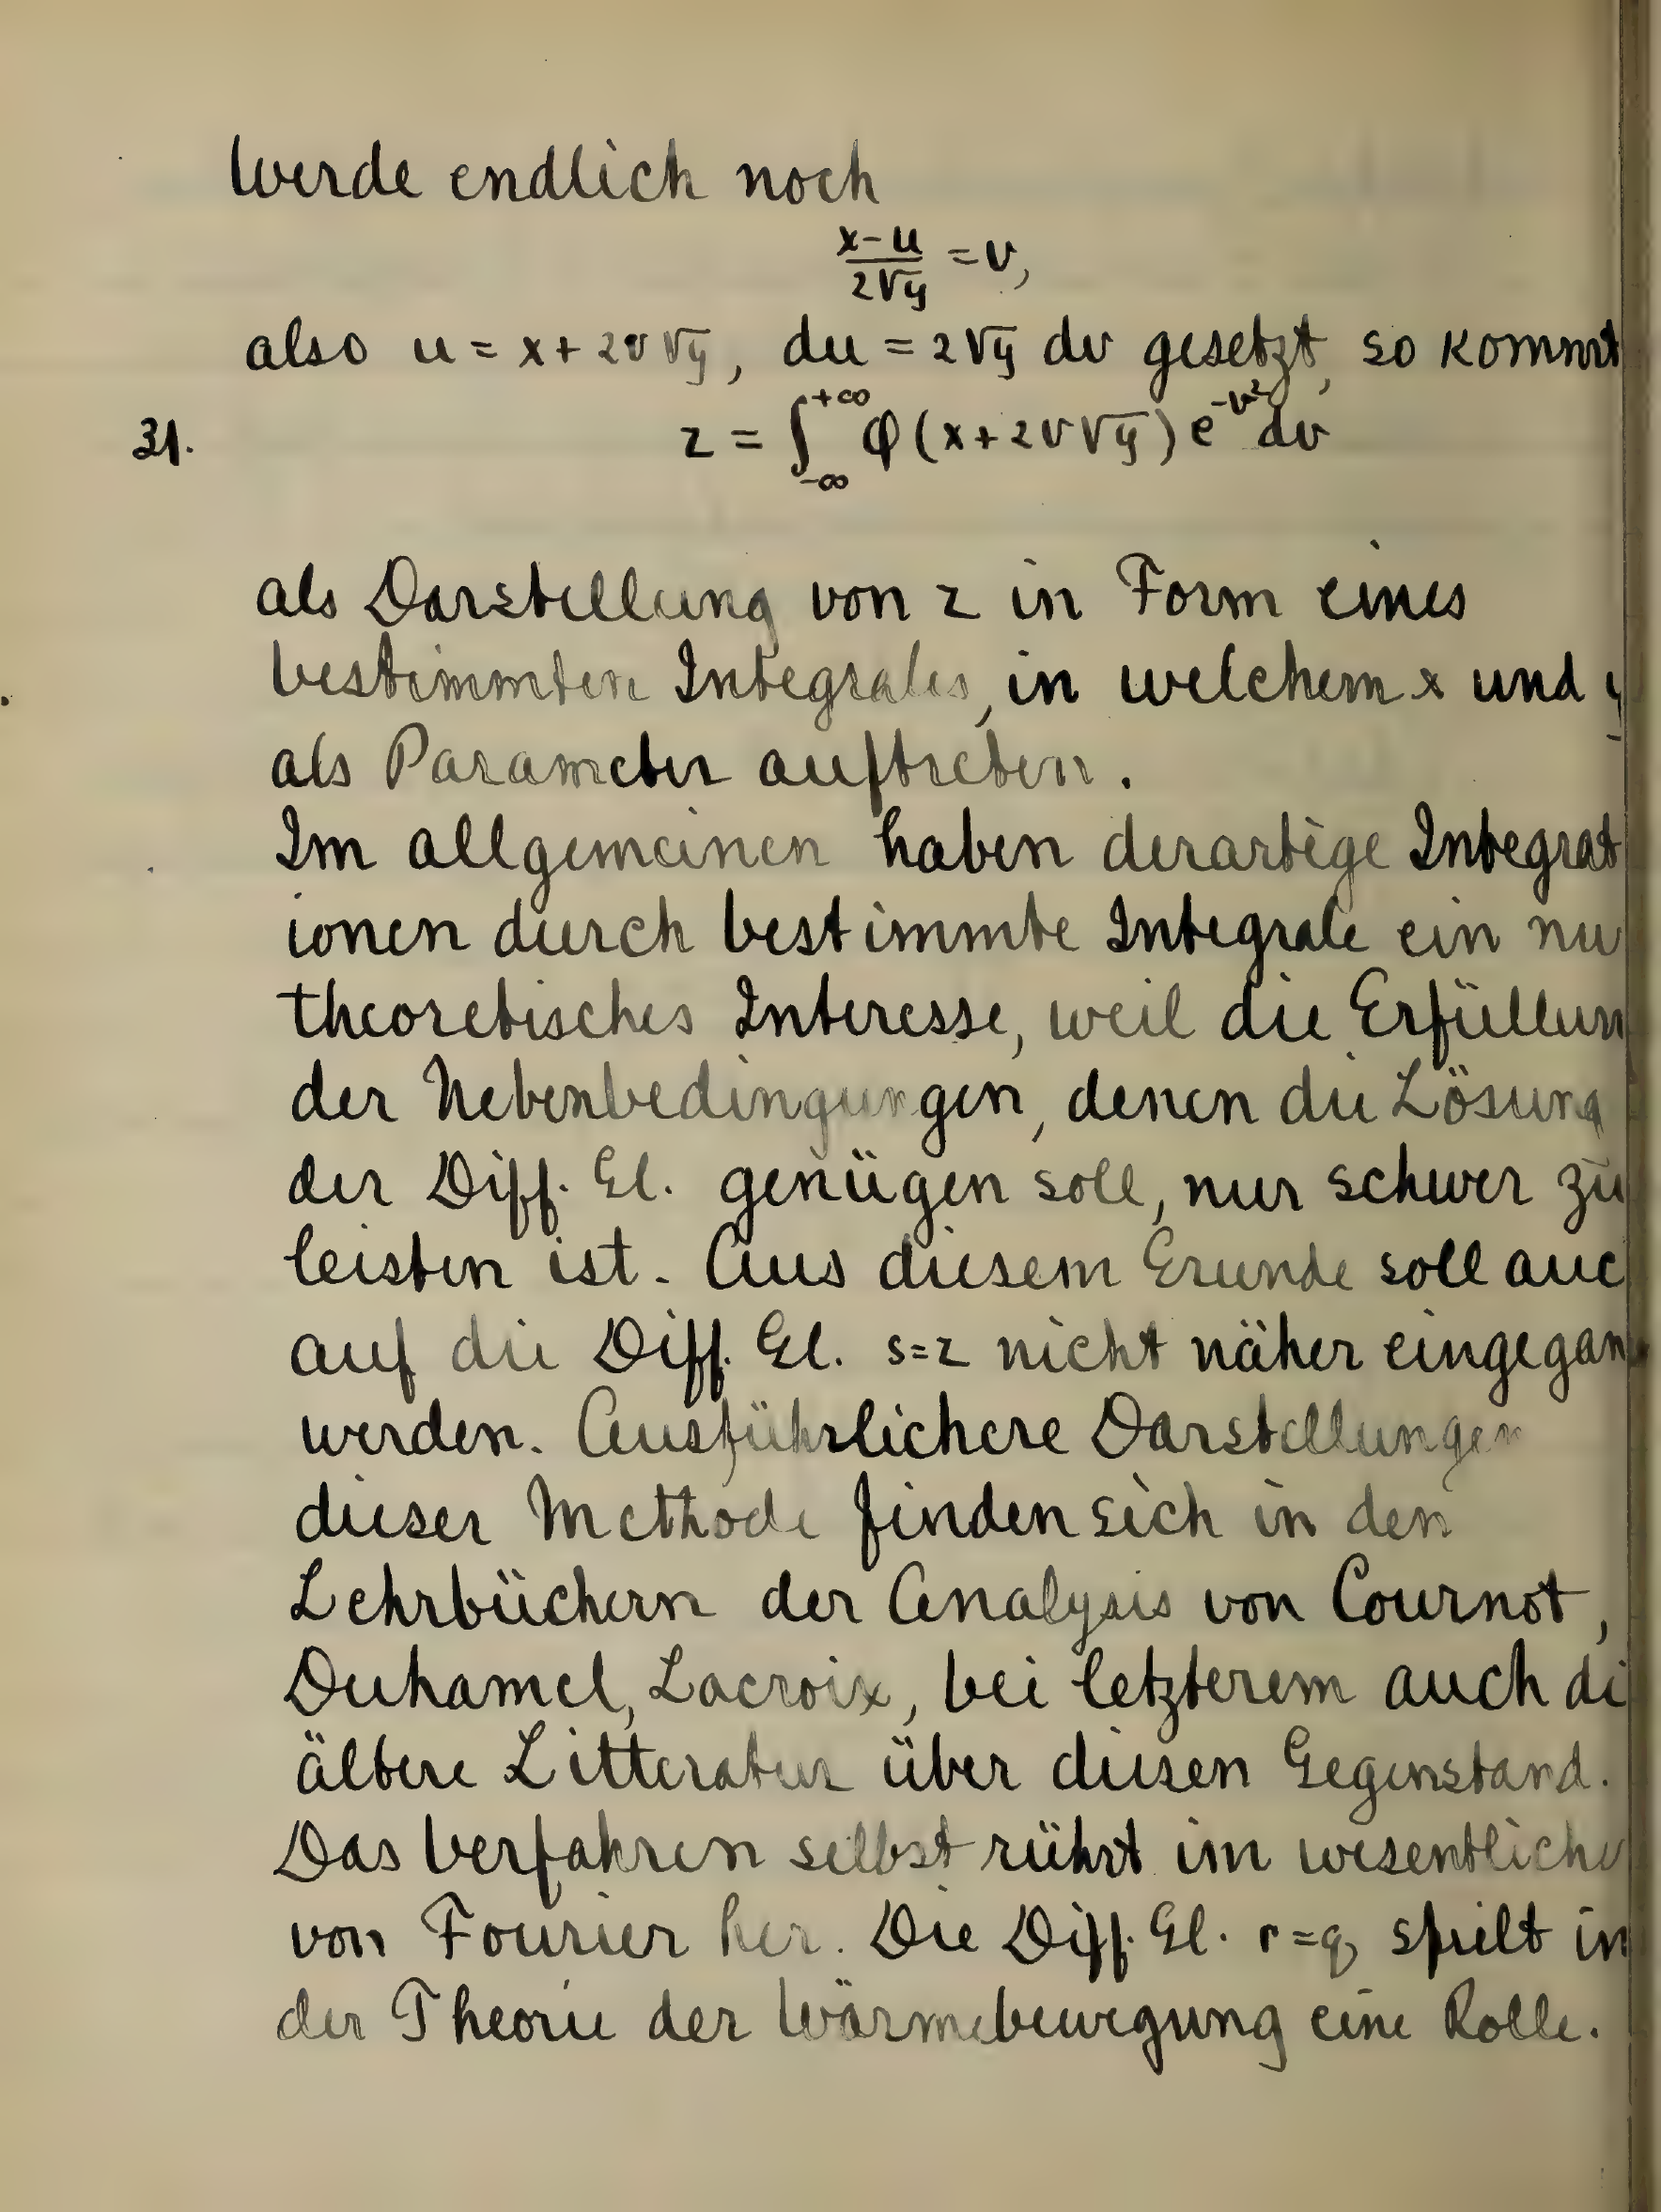 Werde endlich noch
(x-u)/(2√y) = v,
also u = x + 2v√y, du = 2√y dv gesetzt, so kommt
31. z = ∫_{-∞}^{+∞} φ(x+2v√y) e^{-v²} dv
als Darstellung von z in Form eines
bestimmten Integrales, in welchem x und y
als Parameter auftreten.
Im allgemeinen haben derartige Integrat
ionen durch bestimmte Integrale ein nu
theoretisches Interesse, weil die Erfüllun
der Nebenbedingungen, denen die Lösung
der Diff. Gl. genügen soll, nur schwer zu
leisten ist. Aus diesem Grunde soll auc
auf die Diff. Gl. s=z nicht näher eingegan
werden. Ausführlichere Darstellungen
dieser Methode finden sich in den
Lehrbüchern der Analysis von Cournot,
Duhamel, Lacroix, bei letzterem auch di
ältere Litteratur über diesen Gegenstand.
Das Verfahren selbst rührt im wesentliche
von Fourier her. Die Diff. Gl. r=q spielt in
der Theorie der Wärmebewegung eine Rolle.